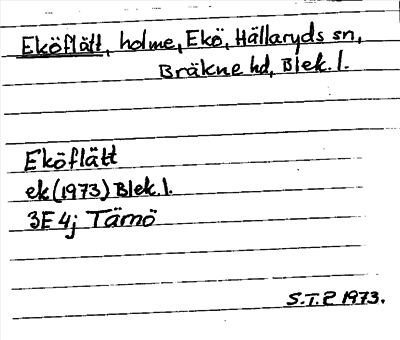 Eköflätt, holme, Ekö, Hällaryds sn,
Bräkne hd, Blek. l.
Eköflätt
ek (1973) Blek. l.
3E 4j Tärnö
S.T.P 1973.